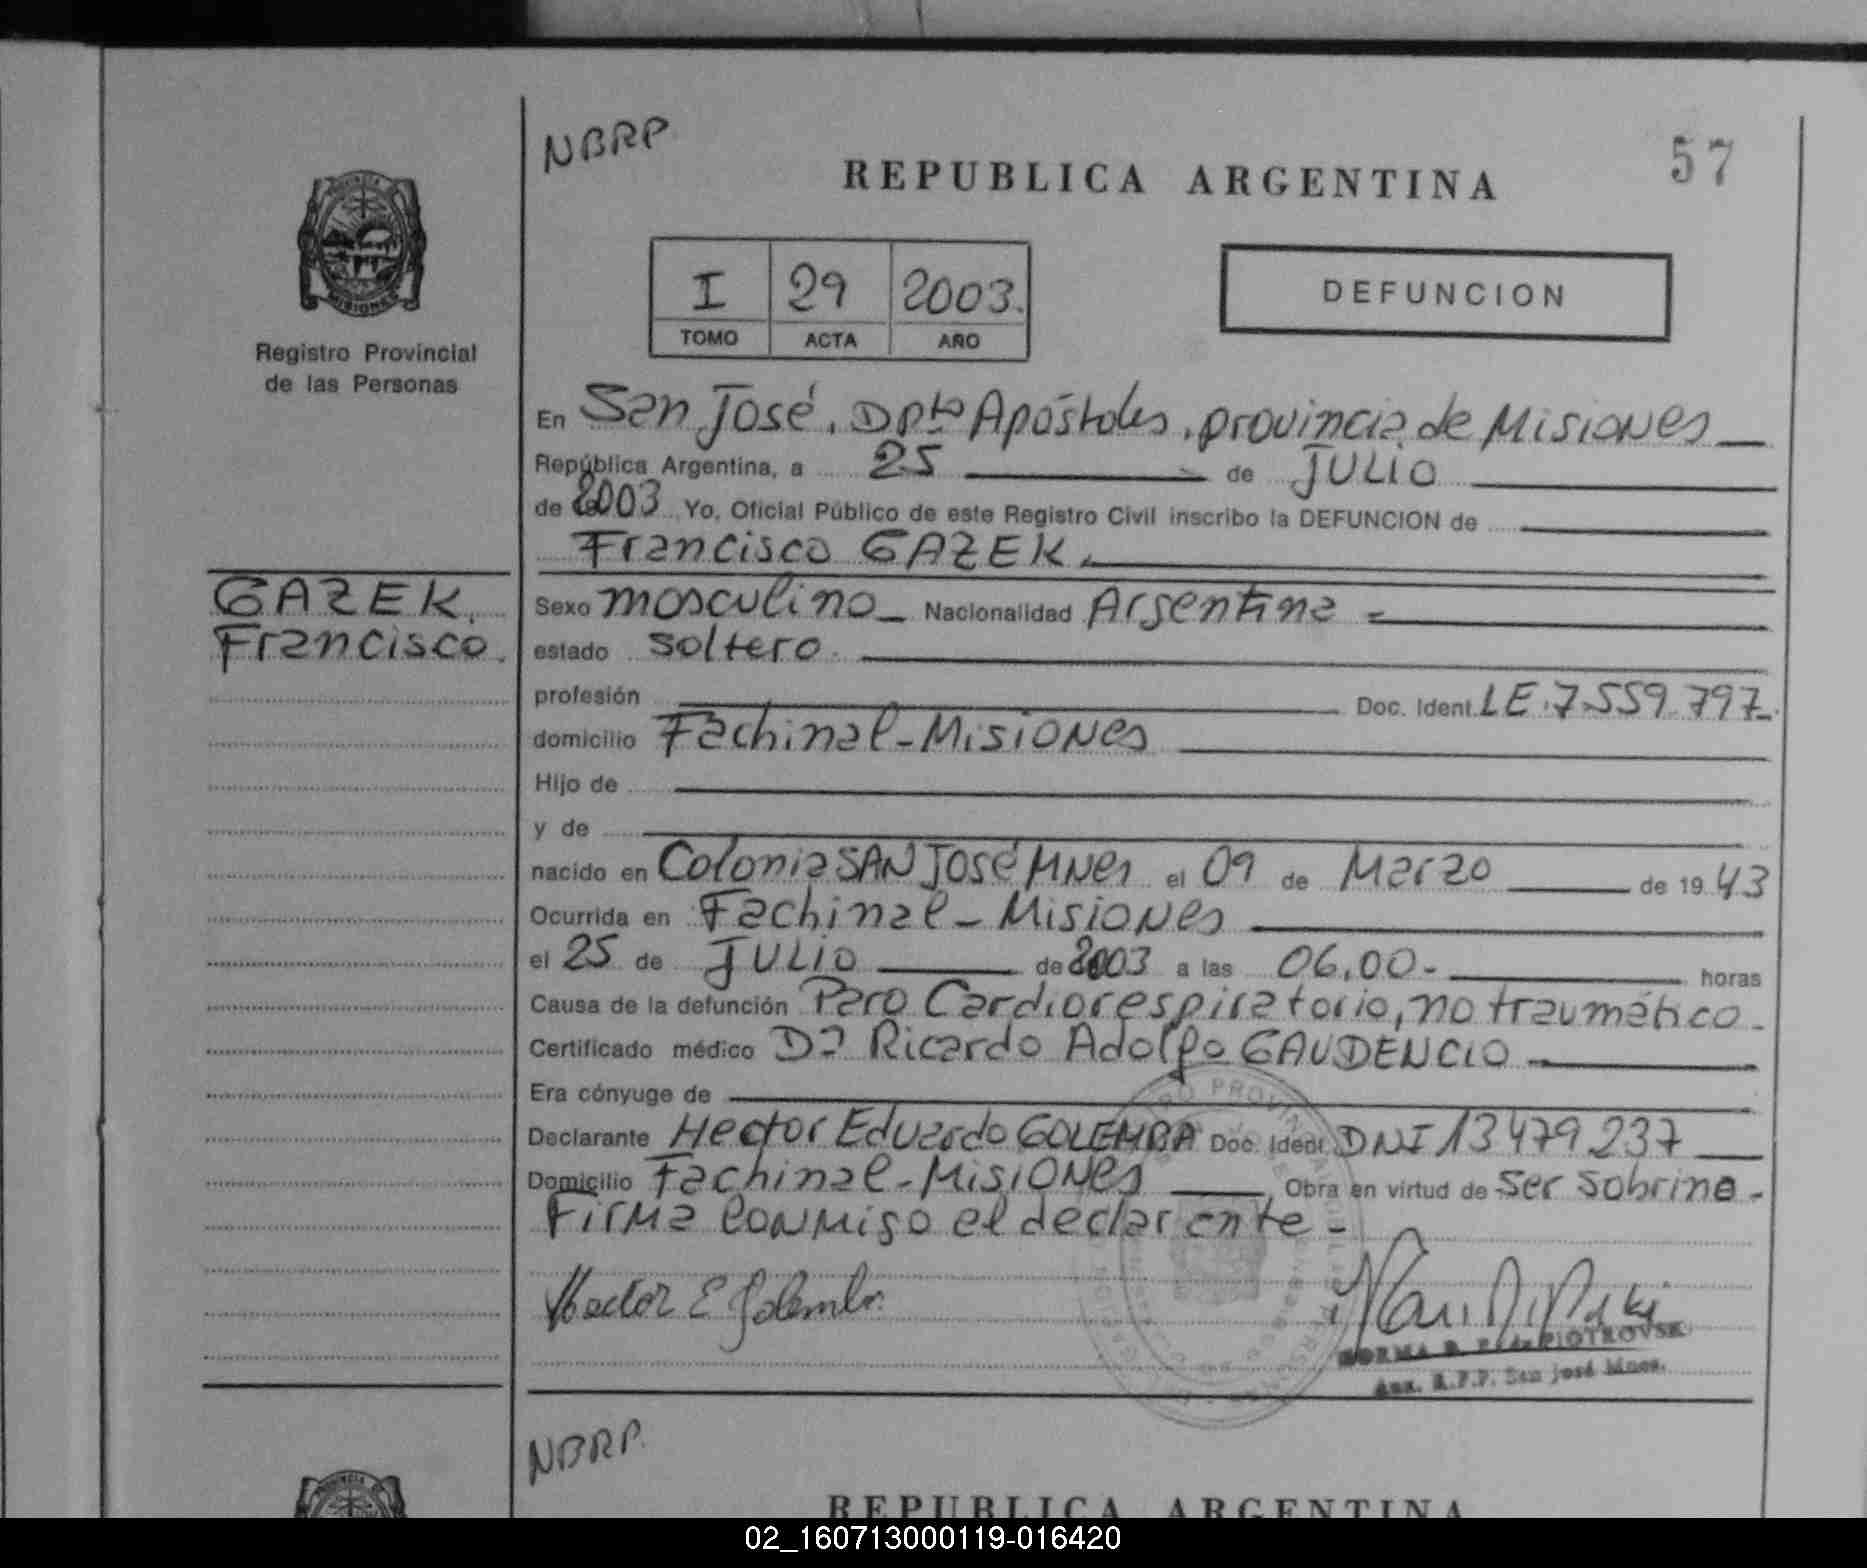 NBRP
REPUBLICA ARGENTINA
57
I 29 2003.
TOMO ACTA AÑO
DEFUNCION
PROVINCIA
MISIONES
Registro Provincial
de las Personas
En San José, Dpto Apóstoles, provincia de Misiones
República Argentina, a 25 de JULIO
de 2003 Yo, Oficial Público de este Registro Civil inscribo la DEFUNCION de
Francisco GAZEK.
GAZEK,
Francisco.
Sexo masculino Nacionalidad Argentina
estado soltero.
profesión Doc. Ident. LE.7.559.797
domicilio Fachinal-Misiones
Hijo de
y de
nacido en Colonia SAN JOSÉ MNes el 09 de Marzo de 19 43
Ocurrida en Fachinal - Misiones
el 25 de JULIO de 2003 a las 06,00.- horas
Causa de la defunción Paro Cardiorespiratorio, no traumático.
Certificado médico Dr Ricardo Adolfo GAUDENCIO
Era cónyuge de
Declarante Hector Eduardo GOLEMBA Doc. Ident. DNI 13479237
Domicilio Fachinal-Misiones, Obra en virtud de ser sobrino.
Firma conmigo el declarante -
Hector E Golemba
NORMA B. de PIOTROVSKI
Aux. R.P.P. San José Mnes.
NBRP.
PROVINCIA
REPUBLICA ARGENTINA
02_160713000119-016420